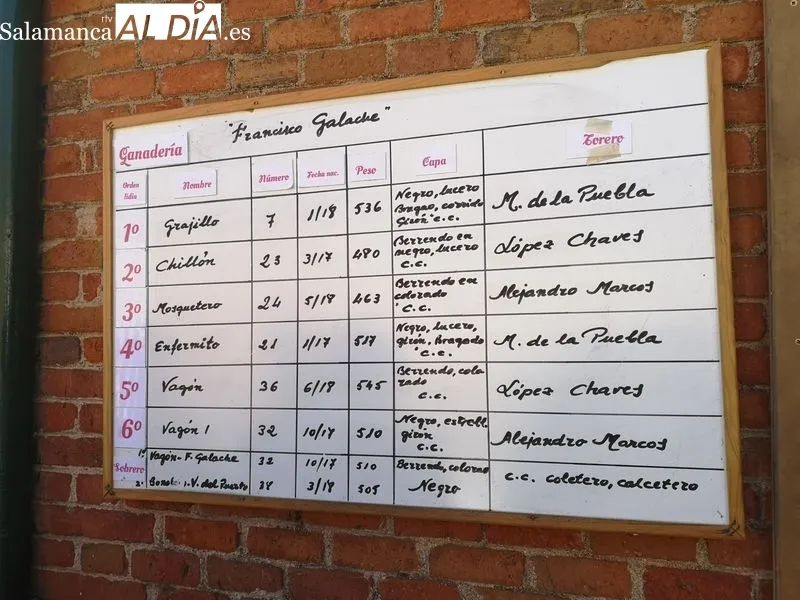 rtv
SalamancaALDÍA.es
"Francisco Galache"
Ganadería
Torero
Orden lidia
Nombre
Número
Fecha nac.
Peso
Capa
1º Grajillo 7 1/18 536 Negro, lucero M. de la Puebla
Bragao, corrido
Girón c.c.
2º Chillón 23 3/17 480 Berrendo en López Chaves
negro, lucero
c.c.
3º Mosquetero 24 5/18 463 Berrendo en Alejandro Marcos
colorado
c.c.
4º Enfermito 21 1/17 517 Negro, lucero, M. de la Puebla
girón, Bragado
c.c.
5º Vagón 36 6/18 545 Berrendo, colo López Chaves
rado
c.c.
6º Vagón 1 32 10/17 510 Negro, estrell. Alejandro Marcos
girón
c.c.
Sobrero 1º Vagón-F. Galache 32 10/17 510 Berrendo, colorao c.c. coletero, calcetero
2º V. del Puerto 38 3/18 505 Negro